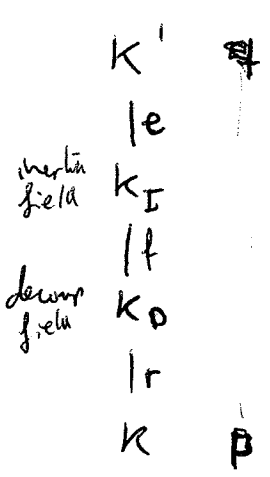 K'
| e
inertia field K_I
| f
decomp field K_D
| r
K p